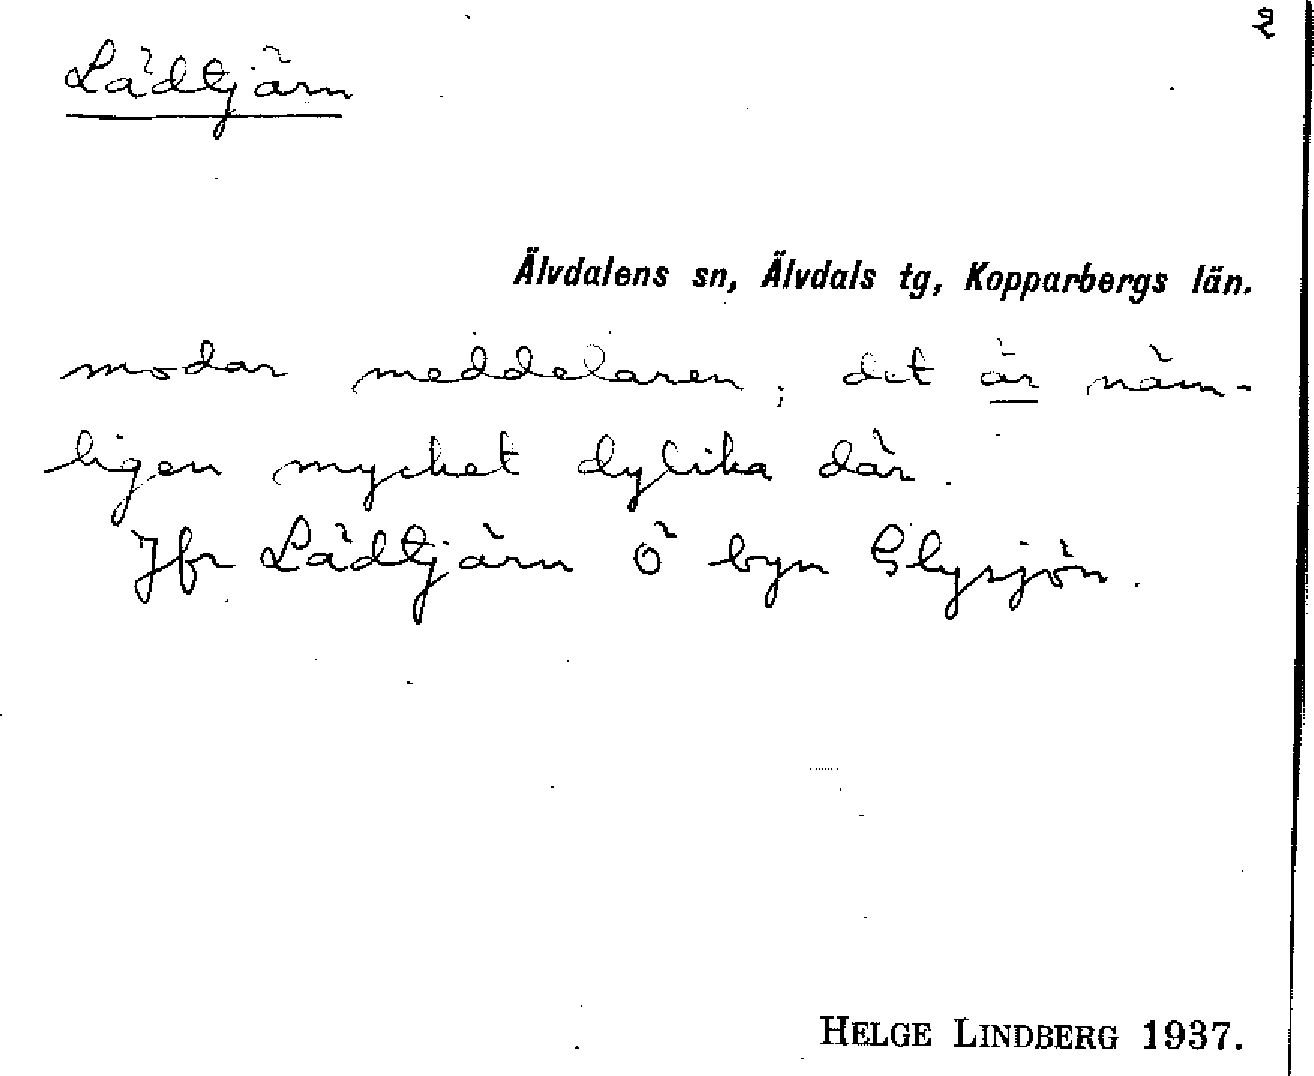 2
Lädtjärn
Älvdalens sn, Älvdals tg, Kopparbergs län.
modar meddelaren; det är näm-
ligen mycket dylika där.
Jfr Lädtjärn Ö byn Glysjön.
HELGE LINDBERG 1937.